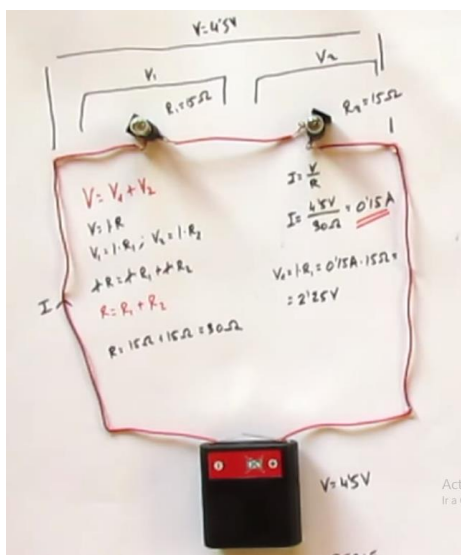 V=4'5V
V₁
V₂
R₁=15Ω
R₂=15Ω
V=V₁+V₂
V=I·R
V₁=I·R₁; V₂=I·R₂
I·R=I·R₁+I·R₂
R=R₁+R₂
R=15Ω+15Ω=30Ω
I=V/R
I=4'5V/30Ω=0'15A
V₁=I·R₁=0'15A·15Ω=
=2'25V
I
V=4'5V
Act
Ir a